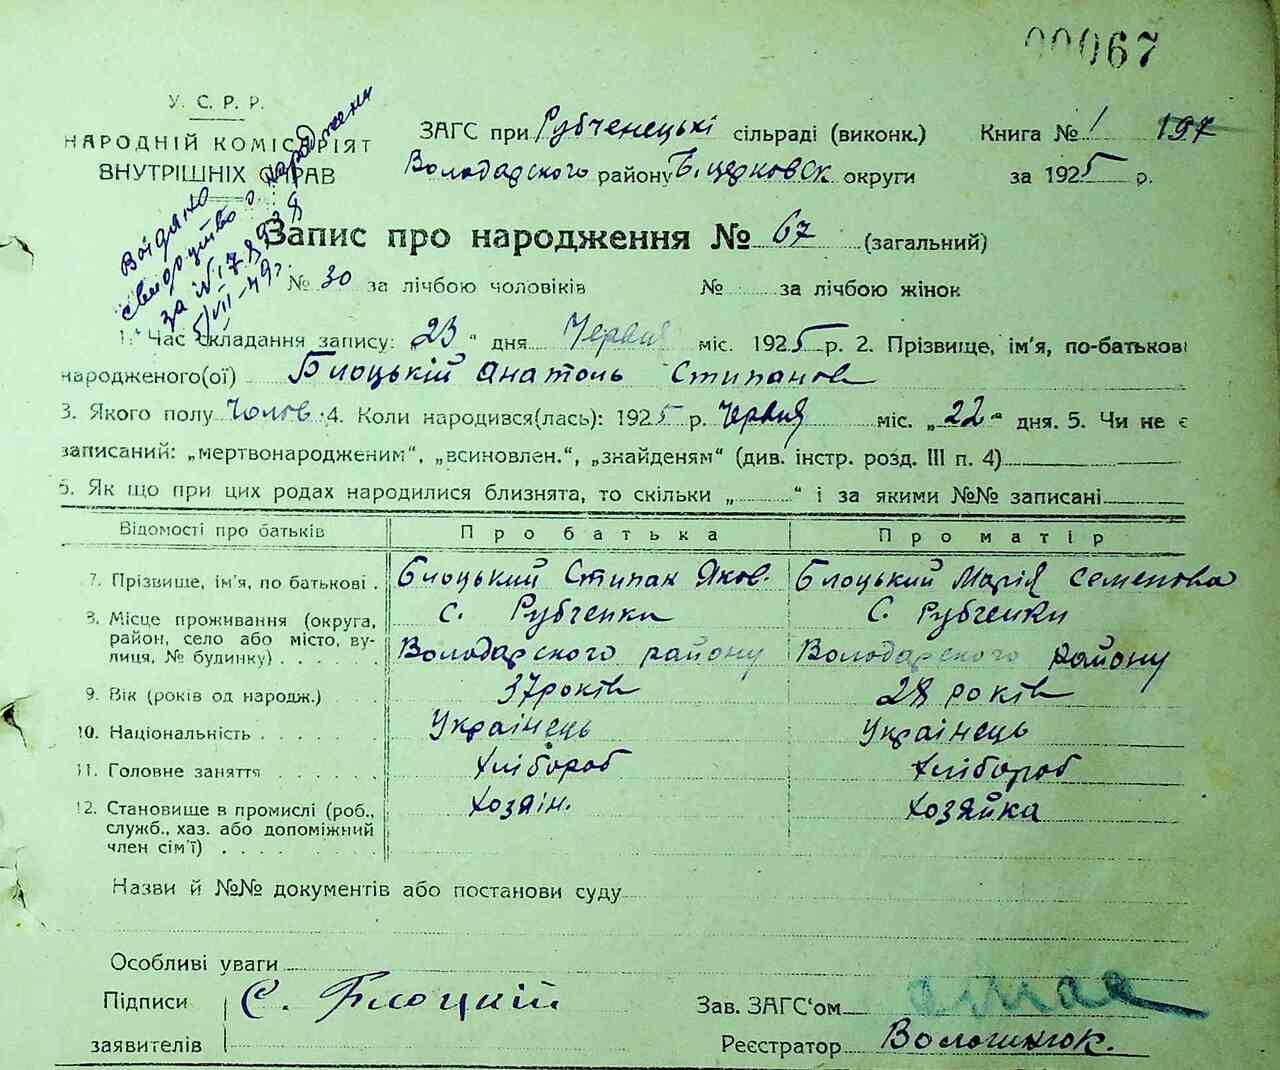 00067
У. С. Р. Р.
НАРОДНІЙ КОМІСАРІЯТ
ВНУТРІШНІХ СПРАВ
ЗАГС при Рубченецькі сільраді (виконк.) Книга № 1 197
Володарского району Б. церковск округи за 1925 р.
Видано
свидоцтво о народжени
за № 178938
5/VII-49 г
Запис про народження № 67 (загальний)
№ 30 за лічбою чоловіків № за лічбою жінок
1. Час складання запису: „23" дня Червня міс. 1925 р. 2. Прізвище, ім'я, по-батькові
народженого(ої) Блоцькій Анатоль Стипанов
3. Якого полу Чолов. 4. Коли народився(лась): 1925 р. Червня міс. „22" дня. 5. Чи не є
записаний: „мертвонародженим", „всиновлен.", „знайденям" (див. інстр. розд. III п. 4)
6. Як що при цих родах народилися близнята, то скільки „ " і за якими №№ записані
Відомості про батьків Про батька Про матір
7. Прізвище, ім'я, по батькові . Блоцький Стипан Яков. Блоцький Марія Семенова
8. Місце проживання (округа, с. Рубченки с. Рубченки
район, село або місто, ву-
лиця, № будинку) . . . . . Володарского району Володарского району
9. Вік (років од народж.) 37 років 28 років
10. Національність . . . . . Украінець Украінець
11. Головне заняття . . . . . Хлібороб Хлібороб
12. Становище в промислі (роб., Хозяін. Хозяйка
служб., хаз. або допоміжний
член сім'ї) . . . . . . . .
Назви й №№ документів або постанови суду
Особливі уваги
Підписи С. Блоцкій Зав. ЗАГС'ом
заявителів Реєстратор